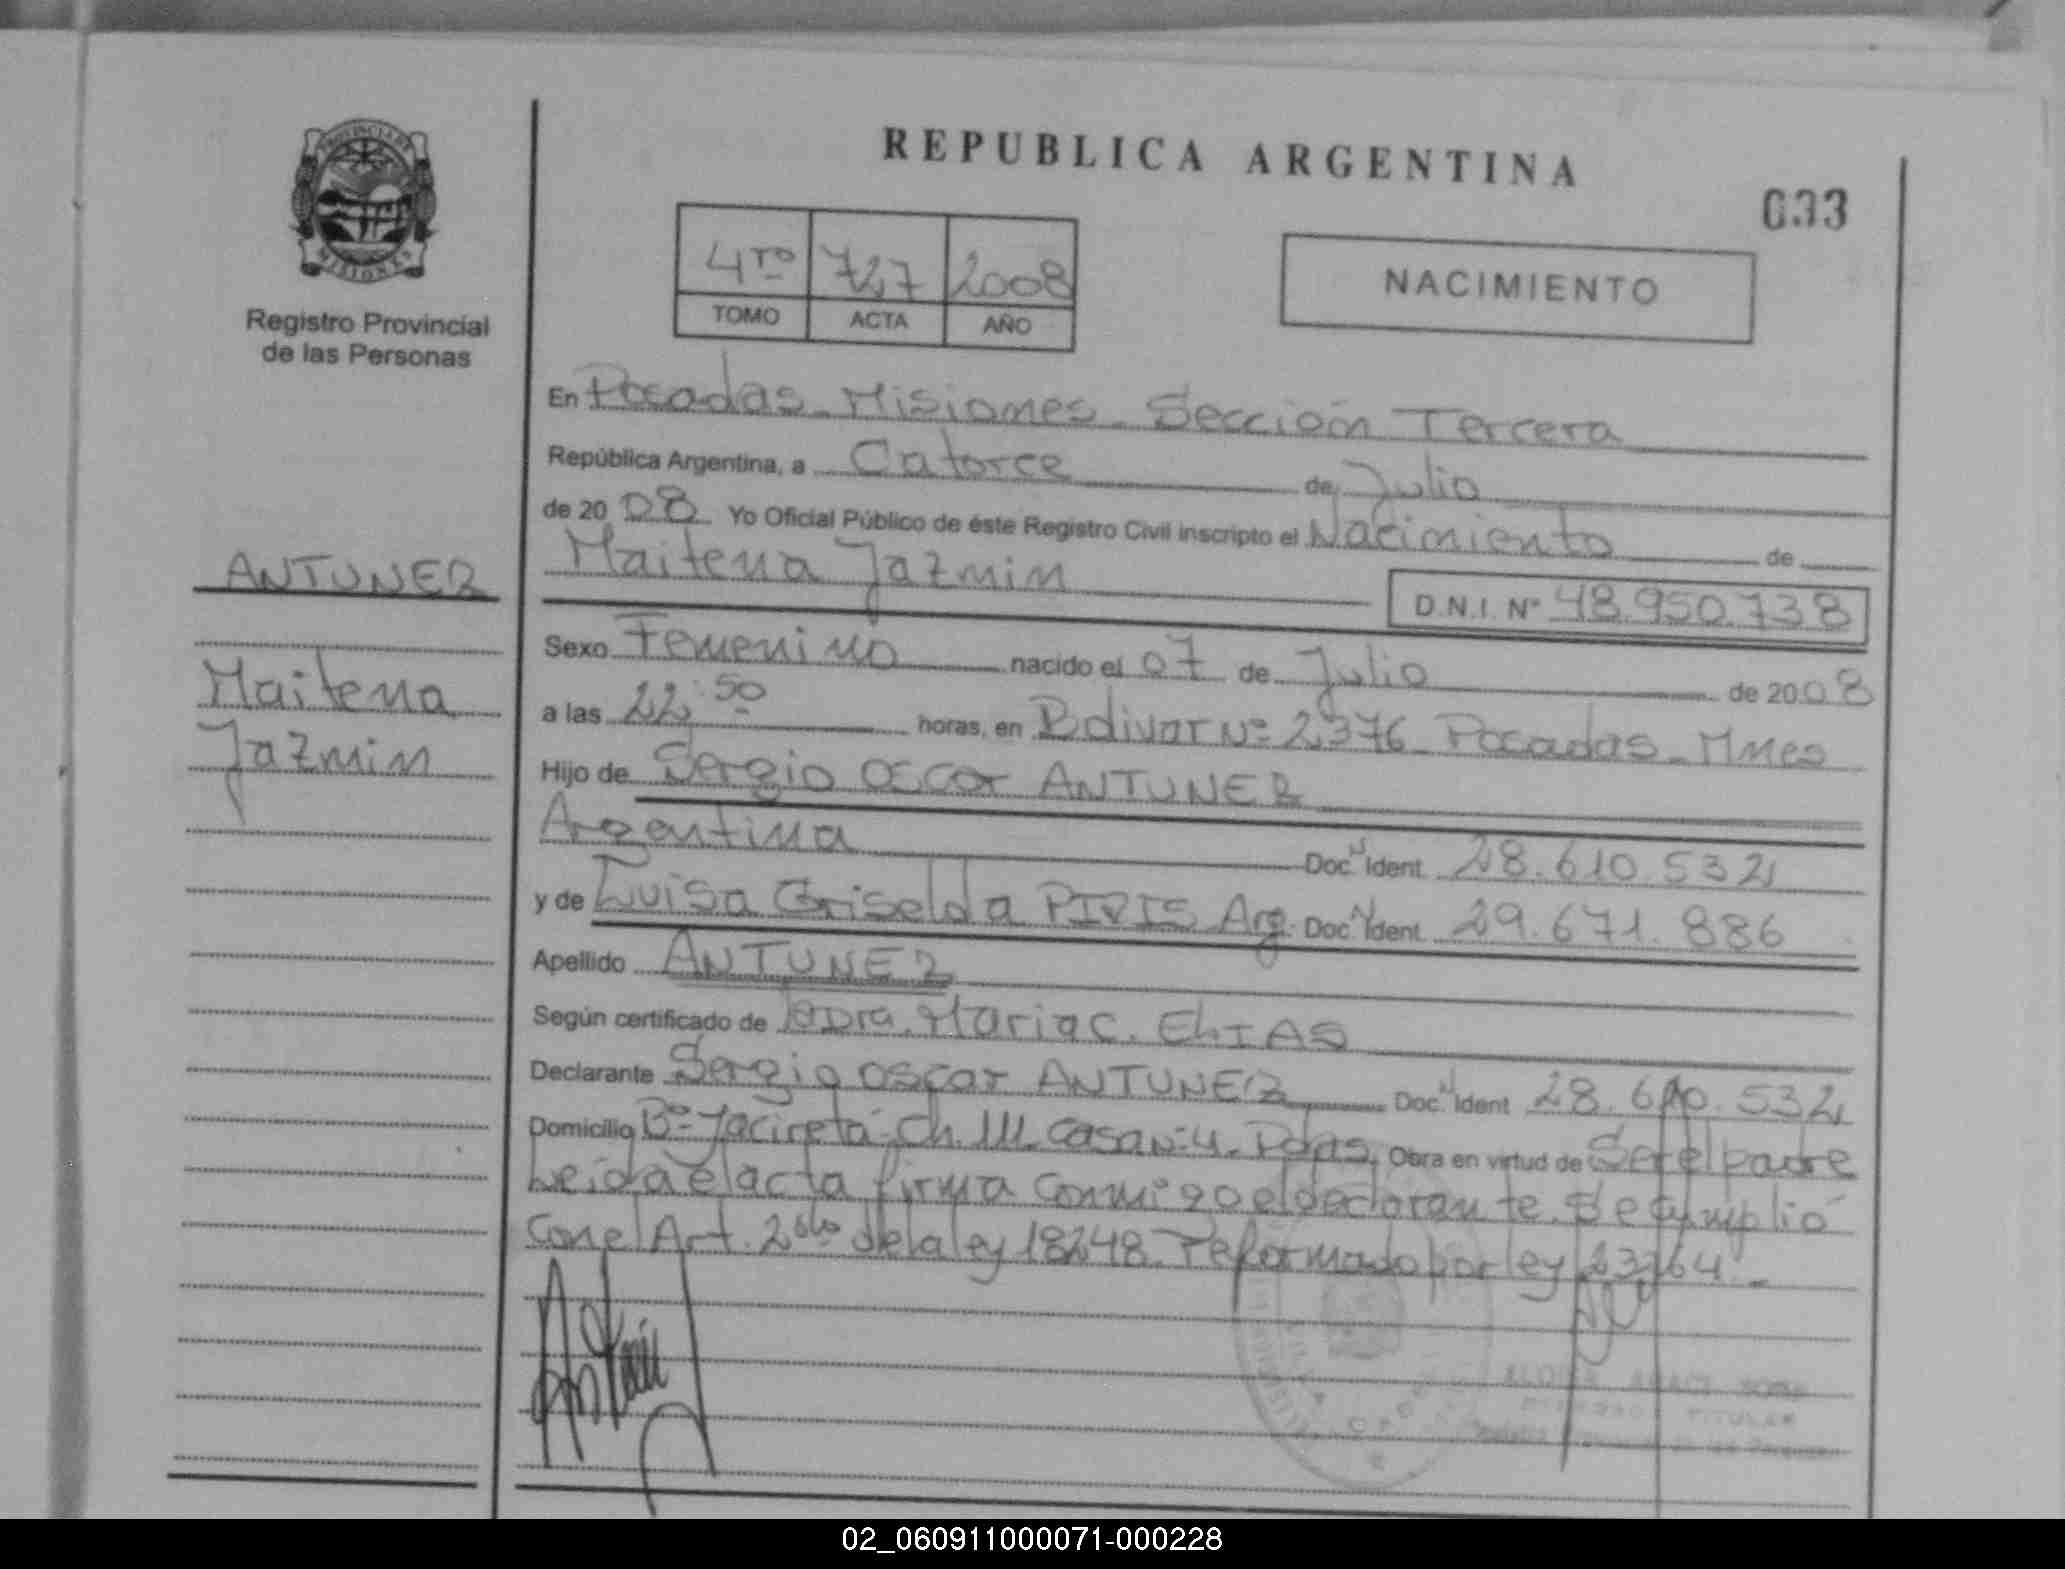 REPUBLICA ARGENTINA
033
PROVINCIA DE
MISIONES
Registro Provincial
de las Personas
4to 727 2008
TOMO ACTA AÑO
NACIMIENTO
En Posadas - Misiones - Sección Tercera
República Argentina, a Catorce de Julio
de 2008 Yo Oficial Público de éste Registro Civil inscripto el Nacimiento de
Maitena Jazmin
D.N.I. Nº 48.950.738
ANTUNEZ
Maitena
Jazmin
Sexo Femenino nacido el 07 de Julio de 2008
a las 22:50 horas, en Bolivar Nº 2376 - Posadas - Mnes
Hijo de Sergio Oscar ANTUNEZ
Argentina Doc. N Ident 28.610.532
y de Luisa Griselda PIRIS Arg. Doc. N Ident 29.671.886
Apellido ANTUNEZ
Según certificado de la Dra. Maria C. ELIAS
Declarante Sergio Oscar ANTUNEZ Doc. N Ident 28.610.532
Domicilio Bº Yacireta - Ch. 111 - Casa Nº 4 - Pdas. Obra en virtud de Ser el padre
Leida el acta firma conmigo el declarante. Se cumplió
con el Art. 2do de la ley 18248. Reformado por ley 23264 -
TITULAR
02_060911000071-000228